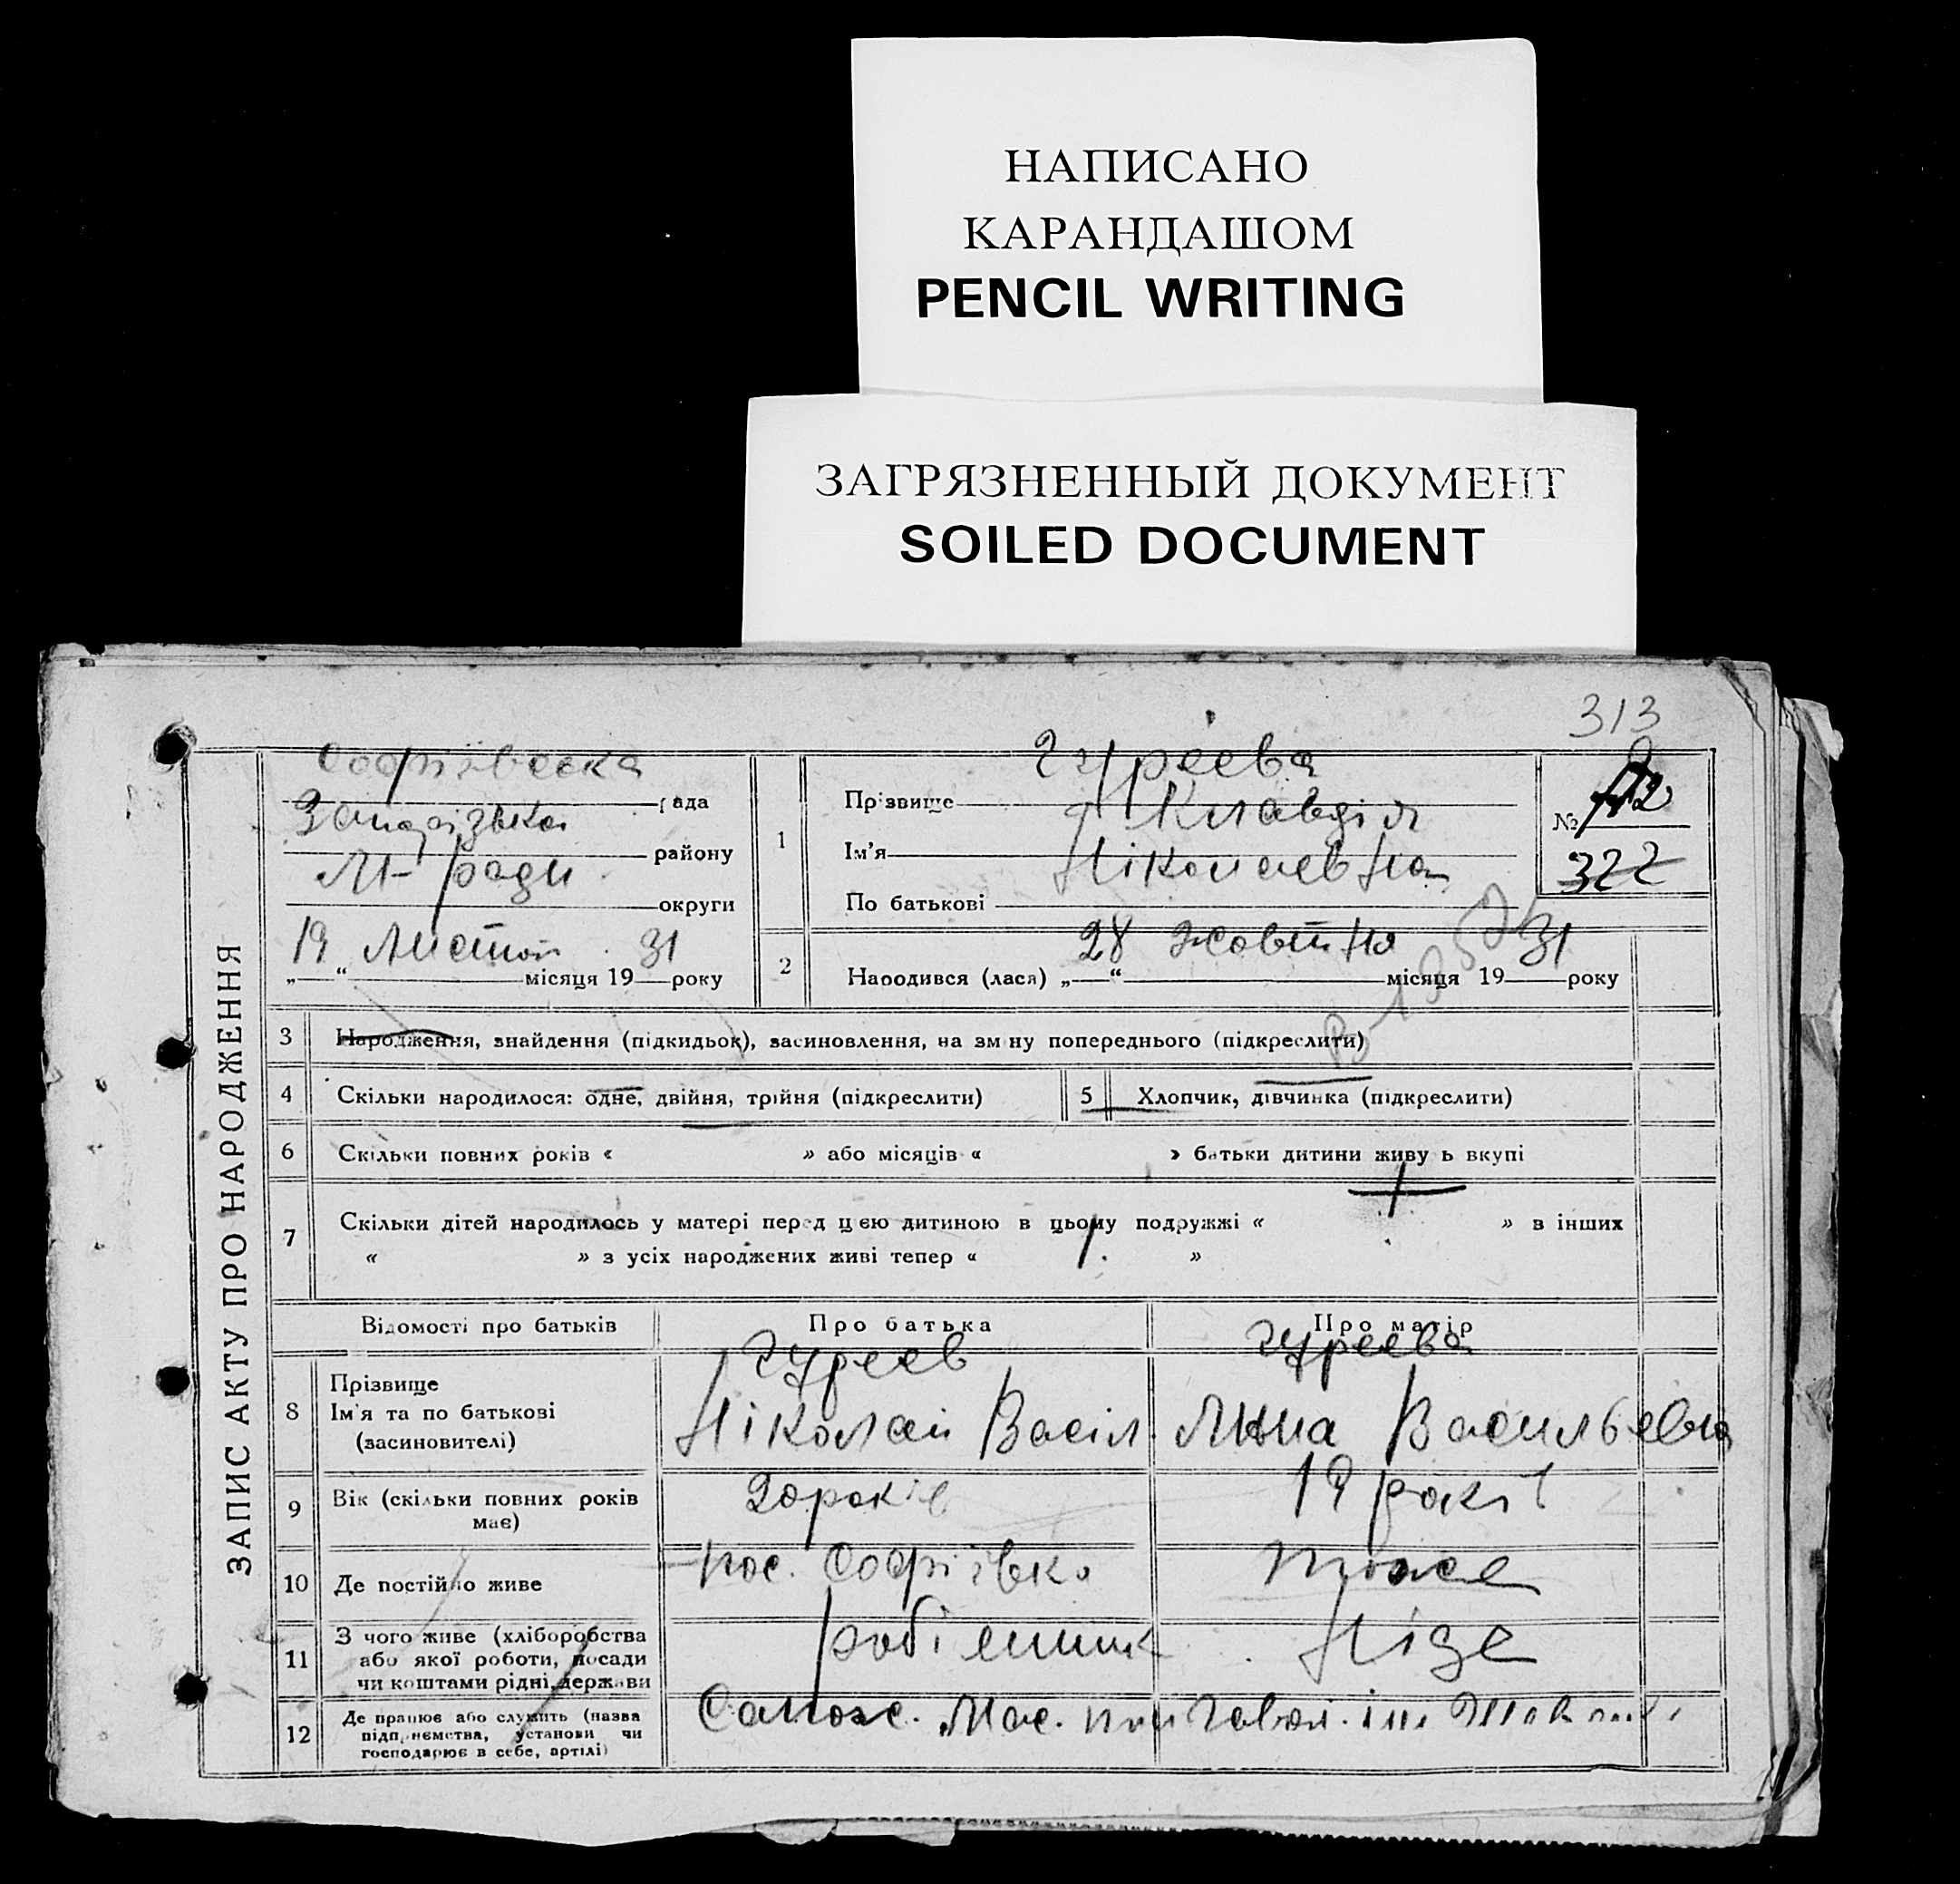 НАПИСАНО
КАРАНДАШОМ
PENCIL WRITING
ЗАГРЯЗНЕННЫЙ ДОКУМЕНТ
SOILED DOCUMENT
313
ЗАПИС АКТУ ПРО НАРОДЖЕННЯ
Софіївська
рада
району
М-ради
округи
„19“ Листоп. місяця 1931 року
1
Прізвище Гуреева
Ім'я Клавдія
По батькові Ніколаевна
№
322
2
Народився (лася) „28“ жовтня місяця 1931 року
3 Народження, знайдення (підкидьок), засиновлення, на зміну попереднього (підкреслити)
4 Скільки народилося: одне, двійня, трійня (підкреслити)
5 Хлопчик, дівчинка (підкреслити)
6 Скільки повних років « » або місяців « » батьки дитини живуть вкупі
7 Скільки дітей народилось у матері перед цією дитиною в цьому подружжі « » в інших
« » з усіх народжених живі тепер « »
Відомості про батьків Про батька Про матір
8 Прізвище
Ім'я та по батькові
(засиновителі)
Гуреев
Ніколай Васіл.
Гуреева
Анна Васильевна
9 Вік (скільки повних років
має)
20 років
19 років
10 Де постійно живе
пос. Софіївка
тоже
11 З чого живе (хліборобства
або якої роботи, посади
чи коштами рідні, держави
робітник
12 Де працює або служить (назва
підприємства, установи чи
господарює в себе, артілі)